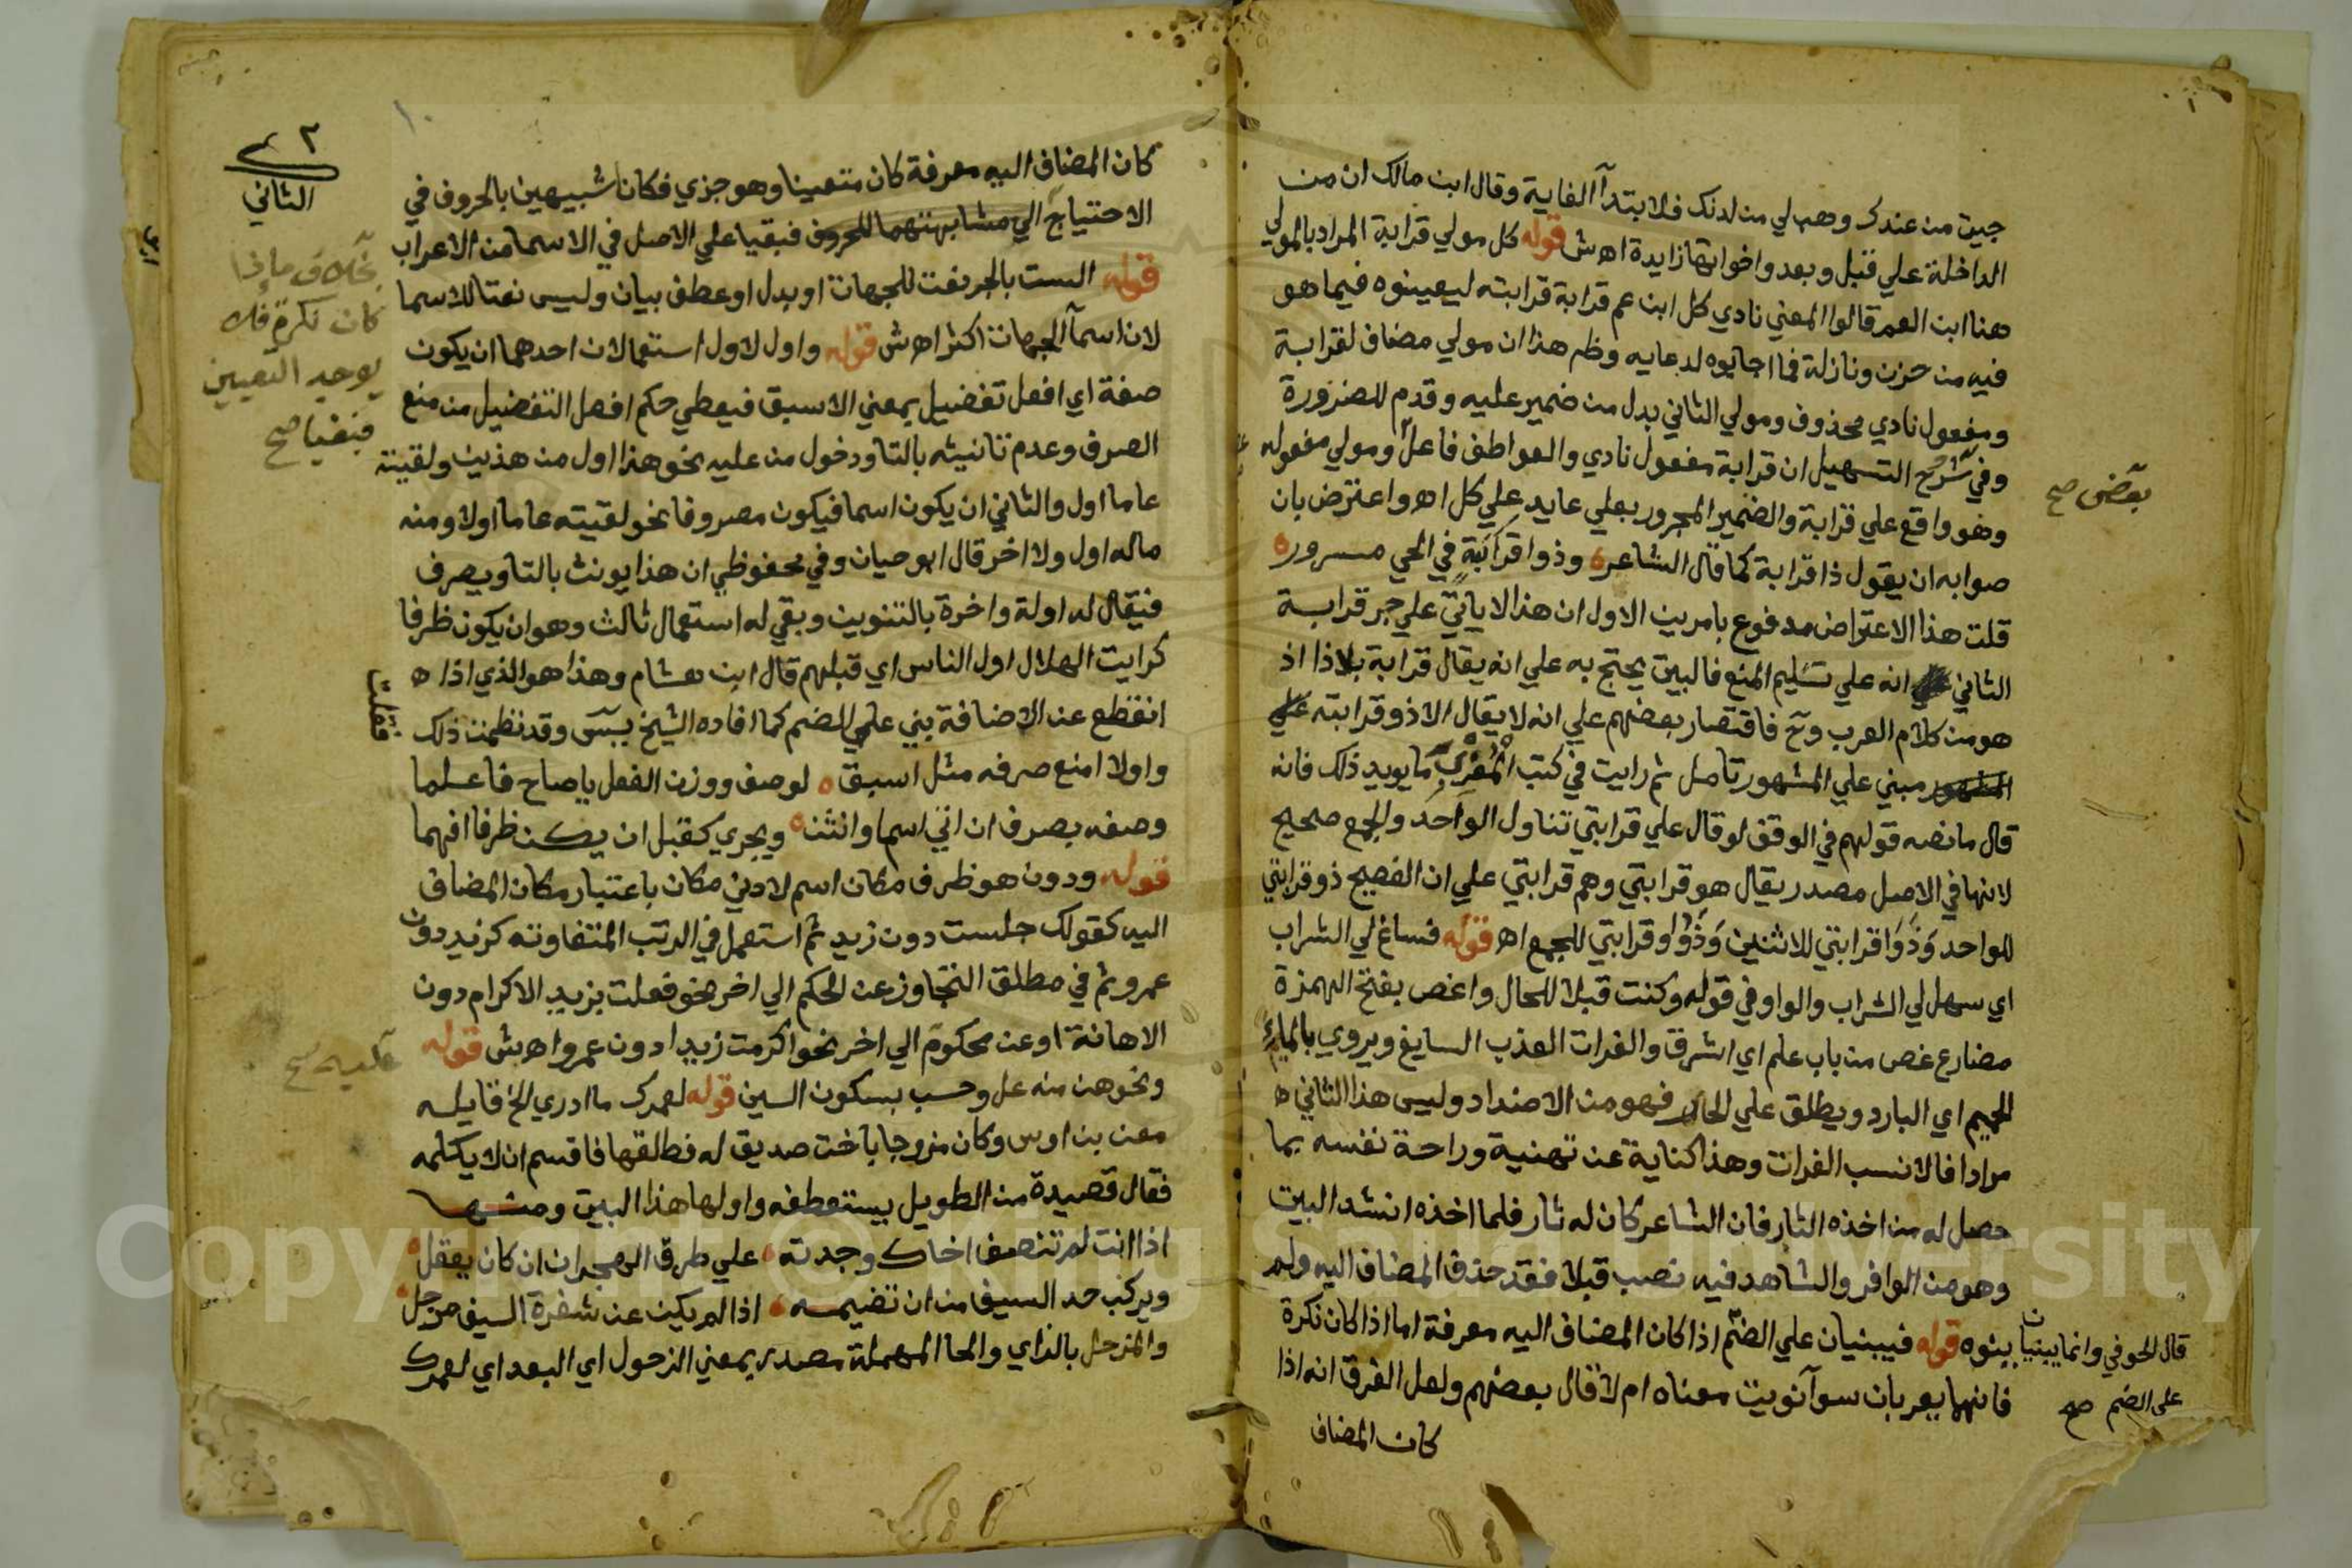 جيت من عندك وهب لي من لدنك فلابتدآ الغاية وقال ابن مالك ان من
الداخلة علي قبل وبعد واخواتها زايدة اه ش قوله كل مولي قرابة المراد بالمولي
هنا ابن العم قالوا المعني نادي كل ابن عم قرابة قرابته ليعينوه فيما هو
فيه من حزن ونازلة فما اجابوه لدعايه وظهر هذا ان مولي مضاف لقرابة
ومفعول نادي محذوف ومولي الثاني بدل من ضمير عليه وقدم للضرورة
وفي شرح التسهيل ان قرابة مفعول نادي والعواطف فاعل ومولي مفعوله
وهو واقع علي قرابة والضمير المجرور بعلي عايد علي كل اه واعترض بان
صوابه ان يقول ذا قرابة كما قال الشاعر وذوا قرابة في الحي مسرور
قلت هذا الاعتراض مدفوع بامرين الاول ان هذا لا ياتي علي جر قرابة
الثاني انه علي تسليم المنع فالبيت يحتج به علي انه يقال قرابة بلا ذا اذ
هو من كلام العرب وح فاقتصار بعضهم علي انه لا يقال الا ذو قرابته علي
المشهور مبني علي المشهور تامل ثم رايت في كتب المغرب ما يويد ذلك فانه
قال ما نصه قولهم في الوقف لو قال علي قرابتي تناول الواحد والجمع صحيح
لانها في الاصل مصدر يقال هو قرابتي وهم قرابتي علي ان الفصيح ذو قرابتي
للواحد وَذَوَا قرابتي للاثنين وَذَوُو قرابتي للجمع اه قوله فساغ لي الشراب
اي سهل لي الشراب والواو في قوله وكنت قبلا للحال واغص بفتح الهمزة
مضارع غص من باب علم اي اشرق والفرات العذب السايغ ويروي بالماء
الحميم اي البارد ويطلق علي الحار فهو من الاضداد وليس هذا الثاني ه
مرادا فالانسب الفرات وهذا كناية عن تهنية وراحة نفسه بما
حصل له من اخذه الثار فان الشاعر كان له ثار فلما اخذه انشد البيت
وهو من الوافر والشاهد فيه نصب قبلا فقد حذف المضاف اليه ولم
ينوه قوله فيبنيان علي الضم اذا كان المضاف اليه معرفة اما اذا كان نكرة
فانهما يعربان سوآ نويت معناه ام لا قال بعضهم ولعل الفرق انه اذا
كان المضاف
بعض صح
قال الحوفي وانما يبنيان
على الضم صح
كان المضاف اليه معرفة كان متعينا وهو جزي فكانا شبيهين بالحروف في
الاحتياج الي مشابهتهما للحروف فبقيا علي الاصل في الاسما من الاعراب
قوله الست بالجر نعت للجهات او بدل او عطف بيان وليس نعتا للاسما
لان اسمآ الجهات اكثر اه ش قوله واول لاول استعمالان احدهما ان يكون
صفة اي افعل تفضيل بمعني الاسبق فيعطي حكم افعل التفضيل من منع
الصرف وعدم تانيثه بالتا ودخول من عليه نحو هذا اول من هذين ولقيته
عاما اول والثاني ان يكون اسما فيكون مصروفا نحو لقيته عاما اولا ومنه
ماله اول ولا اخر قال ابو حيان وفي محفوظي ان هذا يونث بالتا ويصرف
فيقال له اولة واخرة بالتنوين وبقي له استعمال ثالث وهو ان يكون ظرفا
كرايت الهلال اول الناس اي قبلهم قال ابن هشام وهذا هو الذي اذا ه
انقطع عن الاضافة بني علي الضم كما افاده الشيخ يس وقد نظمت ذلك
واولا امنع صرفه مثل اسبق لوصف ووزن الفعل يا صاح فاعلما
وصفه بصرف ان اتي اسما وانثن ويجري كقبل ان يكن ظرفا افهما
قوله ودون هو ظرف مكان اسم لادني مكان باعتبار مكان المضاف
اليه كقولك جلست دون زيد ثم استعمل في الرتب المتفاوته كزيد دون
عمرو ثم في مطلق التجاوز عن الحكم الي اخر نحو فعلت بزيد الاكرام دون
الاهانة او عن محكوم الي اخر نحو اكرمت زيدا دون عمرو اه بش قوله
ونحوهن منه عل وحسب بسكون السين قوله لعمرك ما ادري الخ قايله
معن بن اوس وكان مزوجا باخت صديق له فطلقها فاقسم ان لا يكلمه
فقال قصيدة من الطويل يستعطفه واولها هذا البيت ومنها
اذا انت لم تنصف اخاك وجدته علي طرف الهجران ان كان يعقل
ويركب حد السيف من ان تضيمه اذا لم يكن عن شفرة السيف مزحل
والمزحل بالزاي والحا المهملة مصدر بمعني الزحول اي البعد اي لعمرك
٢
الثاني
بخلاف ما اذا
كان نكرة فلا
يوجد التعيين
فبقيا صح
فقلت
عليه صح
Copyright © King Saud University